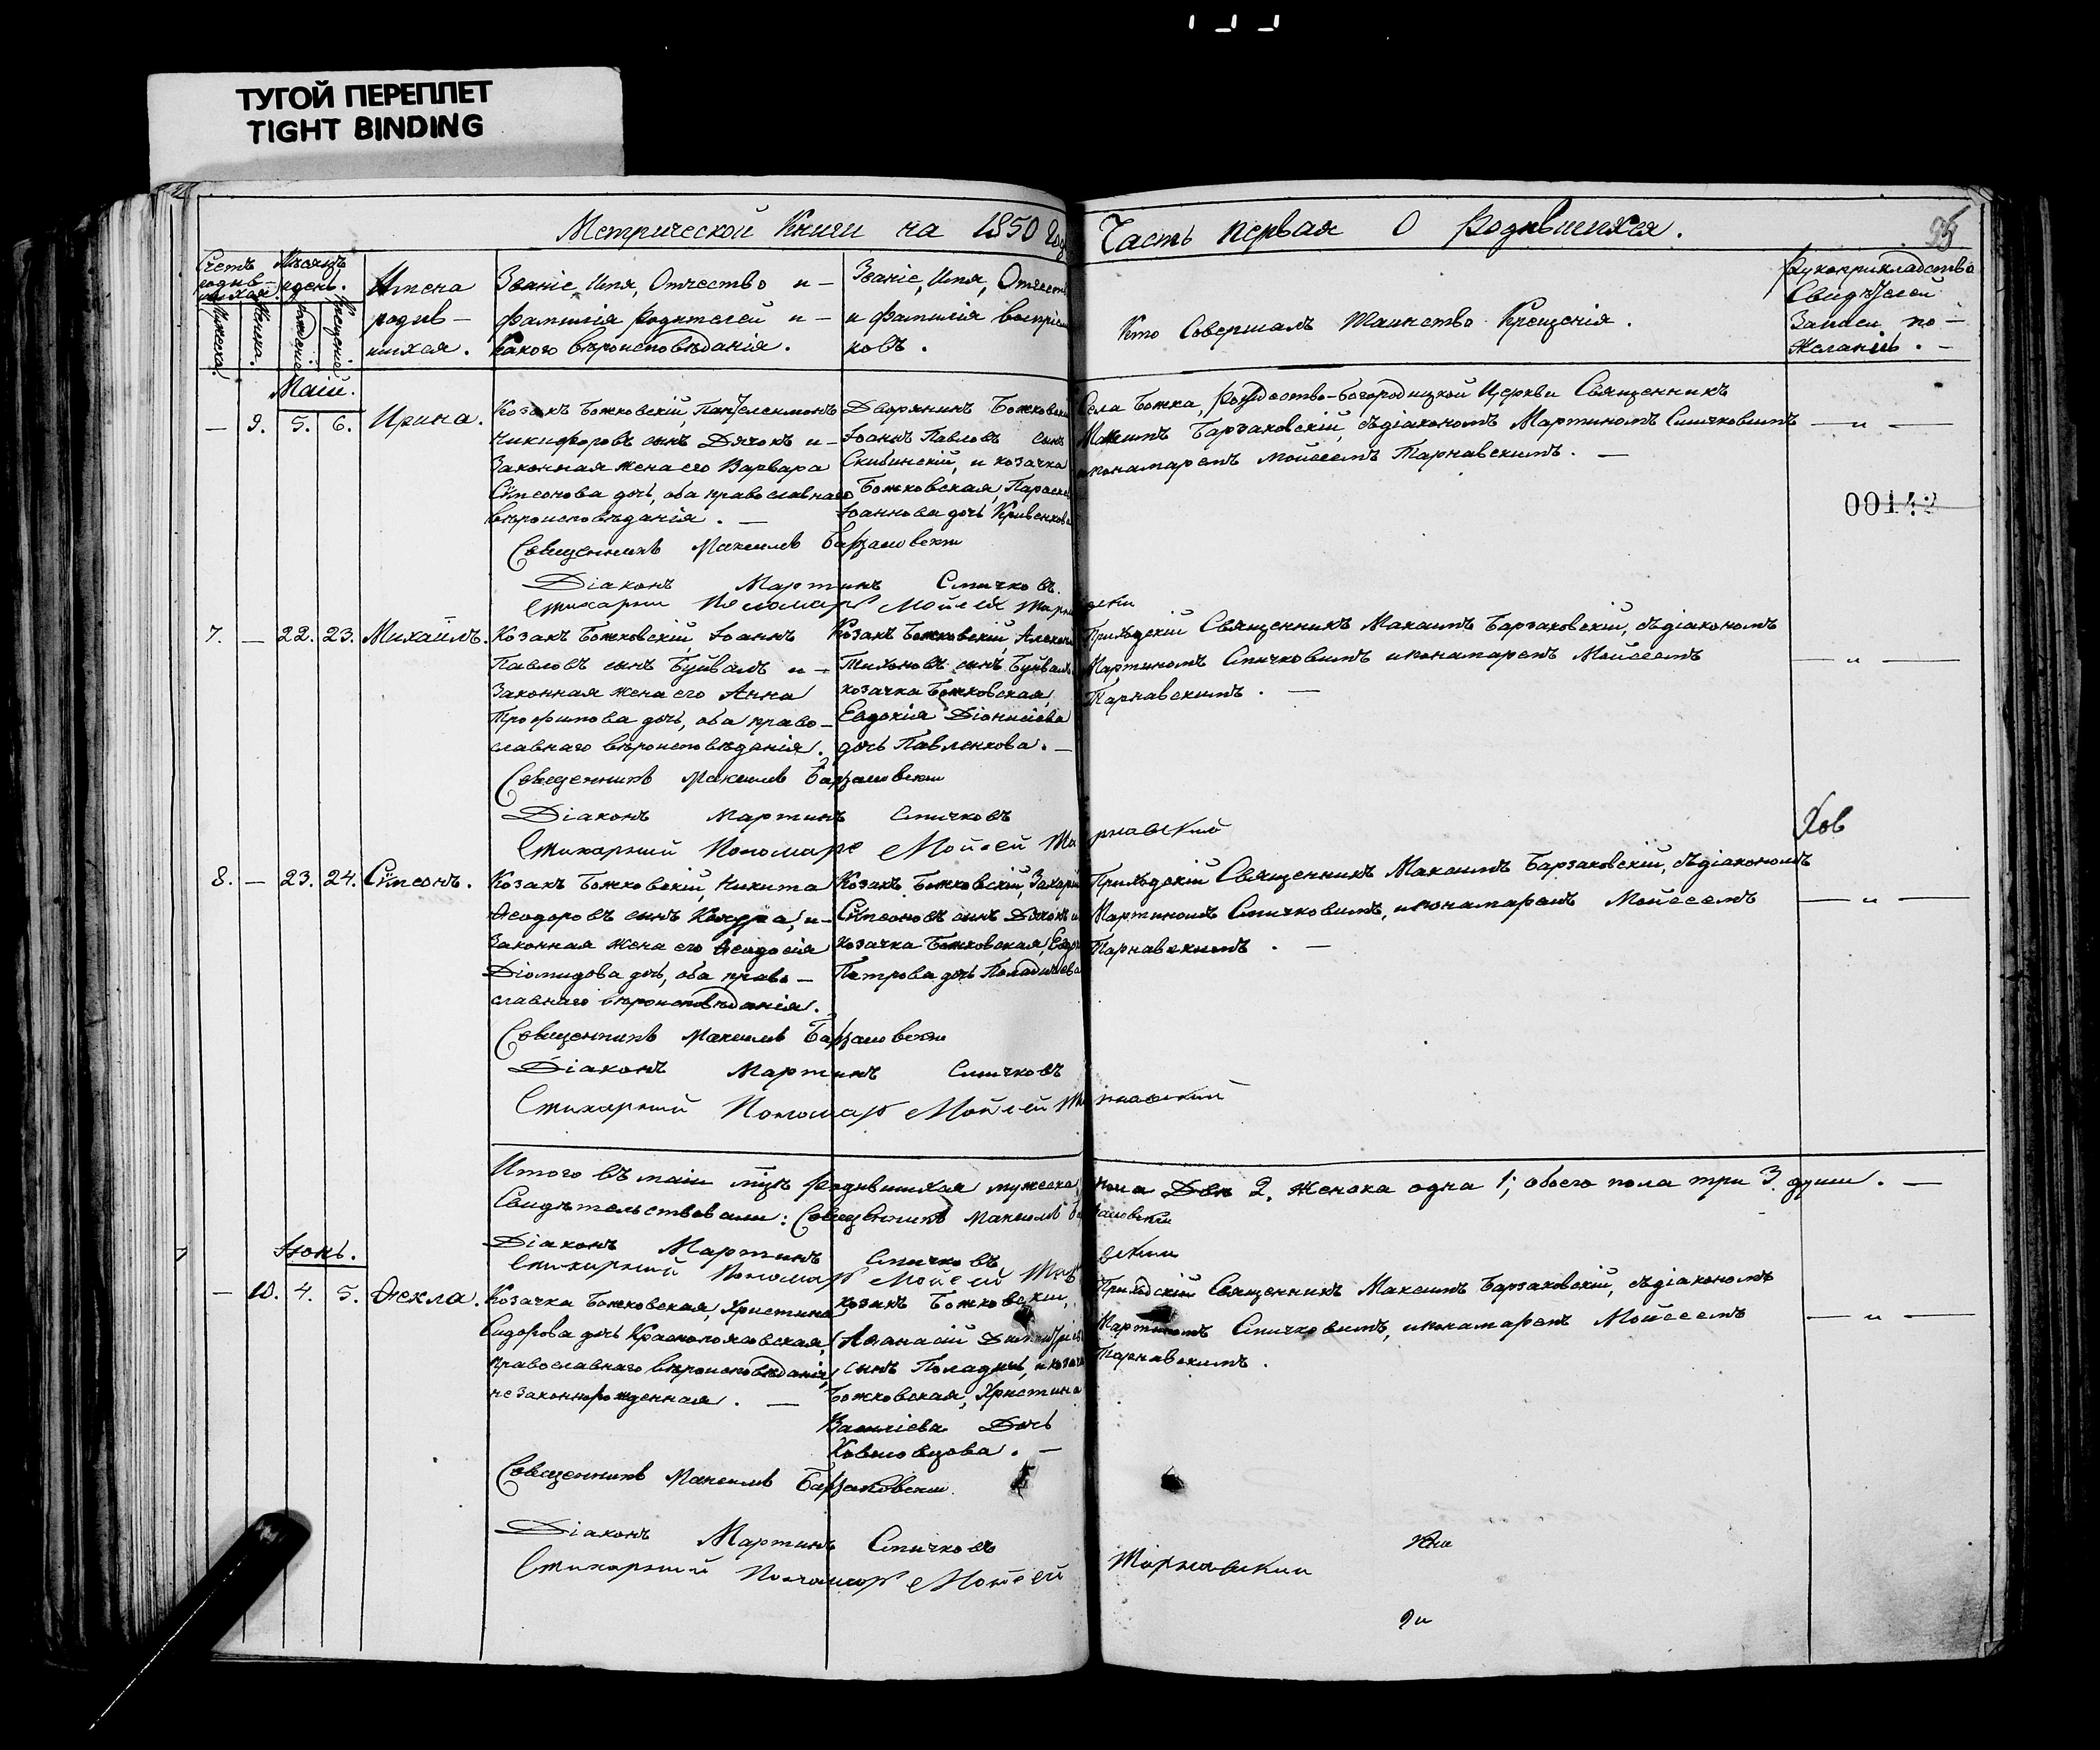 ТУГОЙ ПЕРЕПЛЕТ
TIGHT BINDING
Метрической Книги на 1850 Годъ
Часть первая О Родившихся.
Счетъ родив-шихся.
Мѣсяцъ и день.
Мужеска.
Женска.
Рожденіе
Крещеніе
Имена
родив-
шихся.
Званіе, Имя, Отчество и-
фамилія родителей и-
какого вѣроисповѣданія.
Званіе, Имя, Отчество
и фамилія воспріем
ковъ.
Кто Совершалъ Таинство Крещенія.
Рукоприкладство
Свидѣтелей
Записи по-
Желанію. -
Маій.
— 9. 5. 6. Ирина.
Козакъ Божковскій, Пантелеимонъ
Никифоровъ сынъ Дячокъ и-
Законная жена его Варвара
Сѵмеонова дочь, оба православнаго
вѣроисповѣданія. —
Дворянинъ Божковскій
Іоаннъ Павловъ сынъ
Скибинскій, и козачка
Божковская, Параске
Іоаннова дочь Кривенкова
Села Божка, Рождество-Богородицкой Церкви Священникъ
Максимъ Барзаковскій, съ діакономъ Мартиномъ Спичковымъ
и пономаремъ Мойсеемъ Тарнавскимъ. —
— „ —
00142
Священникъ Максимъ Барзаковскій
Діаконъ Мартинъ Спичковъ.
Стихарный Пономарь Мойсей
7. — 22. 23. Михаилъ.
Козакъ Божковскій, Іоаннъ
Павловъ сынъ Буйвалъ и-
Законная жена его Анна
Трофимова дочь, оба право-
славнаго вѣроисповѣданія.
Козакъ Божковскій,
Тихоновъ сынъ Буйвалъ
козачка Божковская,
Евдокія Діонисіева
дочь Павленкова. —
Приходскій Священникъ Максимъ Барзаковскій, съ діакономъ
Мартиномъ Спичковымъ и пономаремъ Мойсеемъ
Тарнавскимъ. —
„ —
Священникъ Максимъ Барзаковскій
Діаконъ Мартинъ Спичковъ
Стихарный Пономарь Мойсей Тарнавскій
8. — 23. 24. Сѵмеонъ.
Козакъ Божковскій, Никита
Ѳеодоровъ сынъ и-
Законная жена его Ѳеодосія
Діомидова дочь, оба право-
славнаго вѣроисповѣданія.
Козакъ Божковскій, Захарій
Сѵмеоновъ сынъ Дячокъ и
козачка Божковская,
Петрова дочь
Приходскій Священникъ Максимъ Барзаковскій, съ діакономъ
Мартиномъ Спичковымъ, и пономаремъ Мойсеемъ
Тарнавскимъ. —
— „ —
Священникъ Максимъ Барзаковскій
Діаконъ Мартинъ Спичковъ
Стихарный Пономарь Мойсей Тарнавскій
Итого въ маіи мцѣ родившихся мужеска пола Два 2. женска одна 1; обоего пола три 3. души. —
Свидѣтельствовали: Священникъ Максимъ Барзаковскій
Діаконъ Мартинъ Спичковъ
Стихарный Пономарь Мойсей
Іюнь.
— 10. 4. 5. Ѳекла.
Козачка Божковская, Христина
Сидорова дочь Краснопоясовская,
православнаго вѣроисповѣданія,
незаконнорожденная. —
козакъ Божковскій,
Аѳанасій Димитріевъ
сынъ и козачка
Божковская, Христина
Василіева Дочь
Ковшовцова. —
Приходскій Священникъ Максимъ Барзаковскій, съ діакономъ
Мартиномъ Спичковымъ, и пономаремъ Мойсеемъ
Тарнавскимъ.
— „ —
Священникъ Максимъ Барзаковскій.
Діаконъ Мартинъ Спичковъ
Стихарный Пономарь Мойсей Тарнавскій